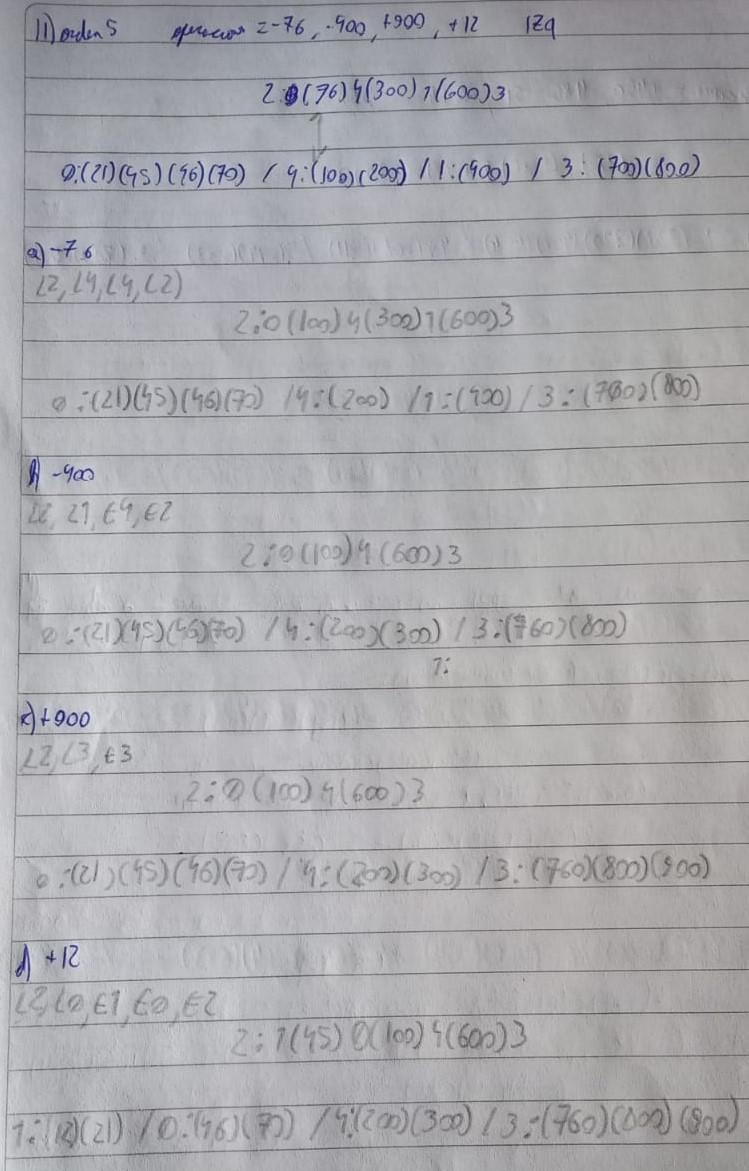 11) orden 5 operaciones = -76, -400, +900, +12 IZq
2: 0 (76) 4 (300) 1 (600) 3
0: (21)(45)(46)(70) / 4: (100)(200) / 1: (400) / 3: (700)(800)
a) -76
L2, L4, L4, L2)
2: 0 (100) 4 (300) 1 (600) 3
0: (21)(45)(46)(70) / 4: (200) / 1: (400) / 3: (760)(800)
b) -400
L2, L1, E4, E2
2: 0 (100) 4 (600) 3
0: (21)(45)(46)(70) / 4: (200)(300) / 3: (760)(800)
1:
c) +900
L2, L3, E3
2: 0 (100) 4 (600) 3
0: (21)(45)(46)(70) / 4: (200)(300) / 3: (760)(800)(900)
d) +12
L2, L0, E1, E0, E2
2: 1 (45) 0 (100) 4 (600) 3
1: (12)(21) / 0: (46)(70) / 4: (200)(300) / 3: (760)(800)(900)